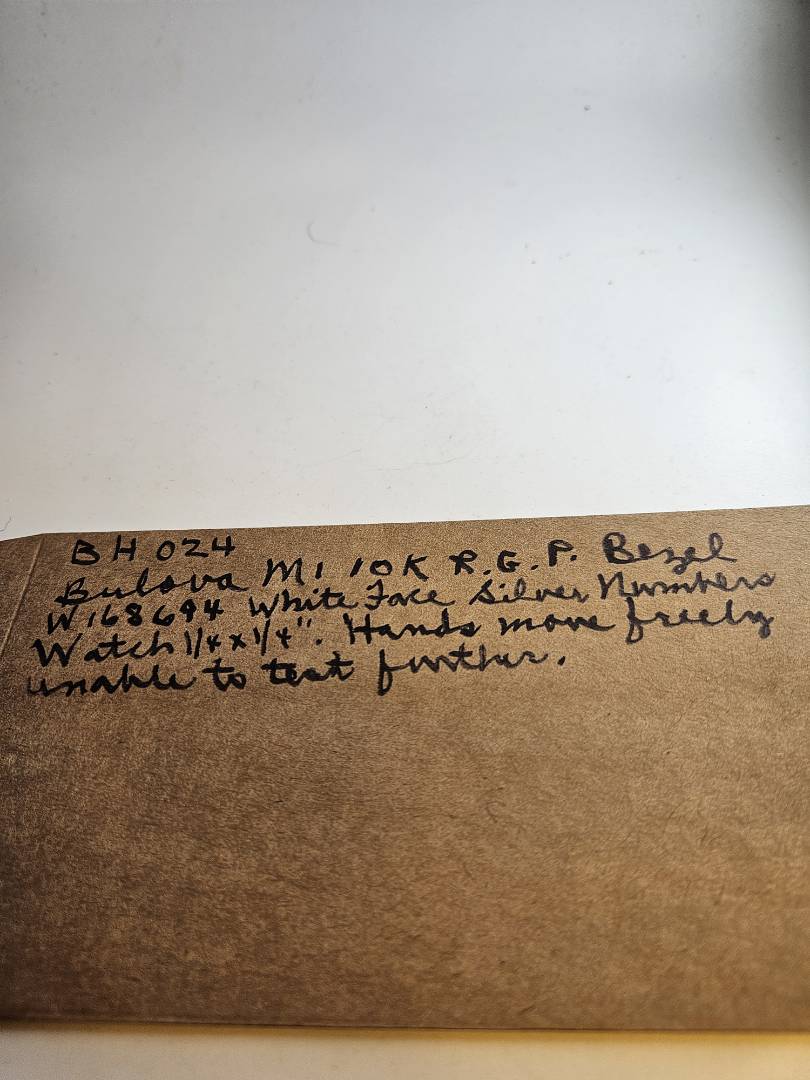 BH 024
Bulova M1 10K R.G.P. Bezel
W168694 White Face Silver Numbers
Watch 1/4 x 1/4". Hands move freely
unable to test further.